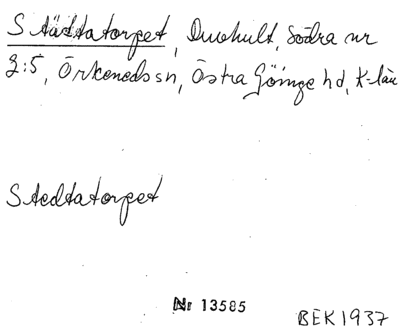 Städtatorpet, Duvhult, Södra nr
2:5, Örkeneds sn, Östra Göinge hd, K-län
Stedtatorpet
Nr 13585
BEK 1937